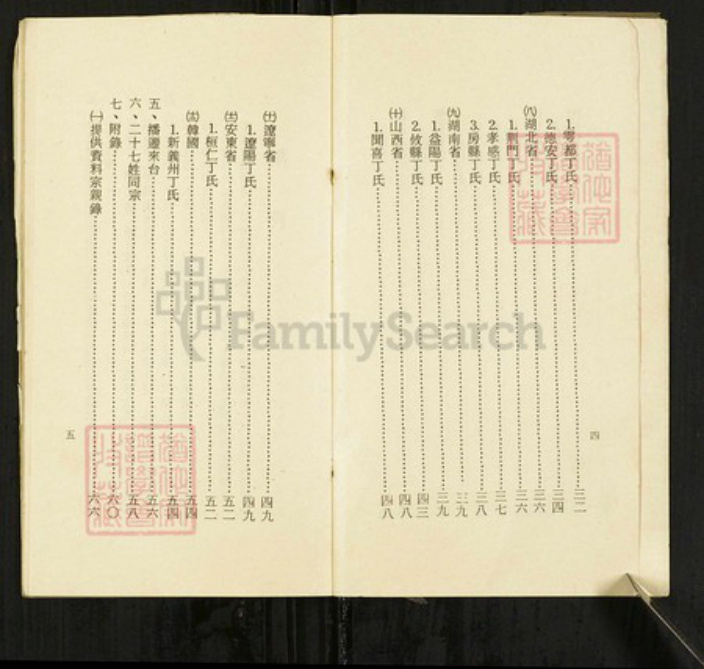 1.雩都丁氏……三二
2.德安丁氏……三四
㈧湖北省……三六
1.荆門丁氏……三六
2.孝感丁氏……三七
3.房縣丁氏……三八
㈨湖南省……三九
1.益陽丁氏……三九
2.攸縣丁氏……四三
㈩山西省……四八
1.聞喜丁氏……四八
四
(十一)遼寧省……四九
1.遼陽丁氏……四九
(十二)安東省……五二
1.桓仁丁氏……五二
(十三)韓國……五四
1.新義州丁氏……五四
五、播遷來台……五六
六、二十七姓同宗……五八
七、附錄……六〇
㈠提供資料宗親錄……六六
五
FamilySearch